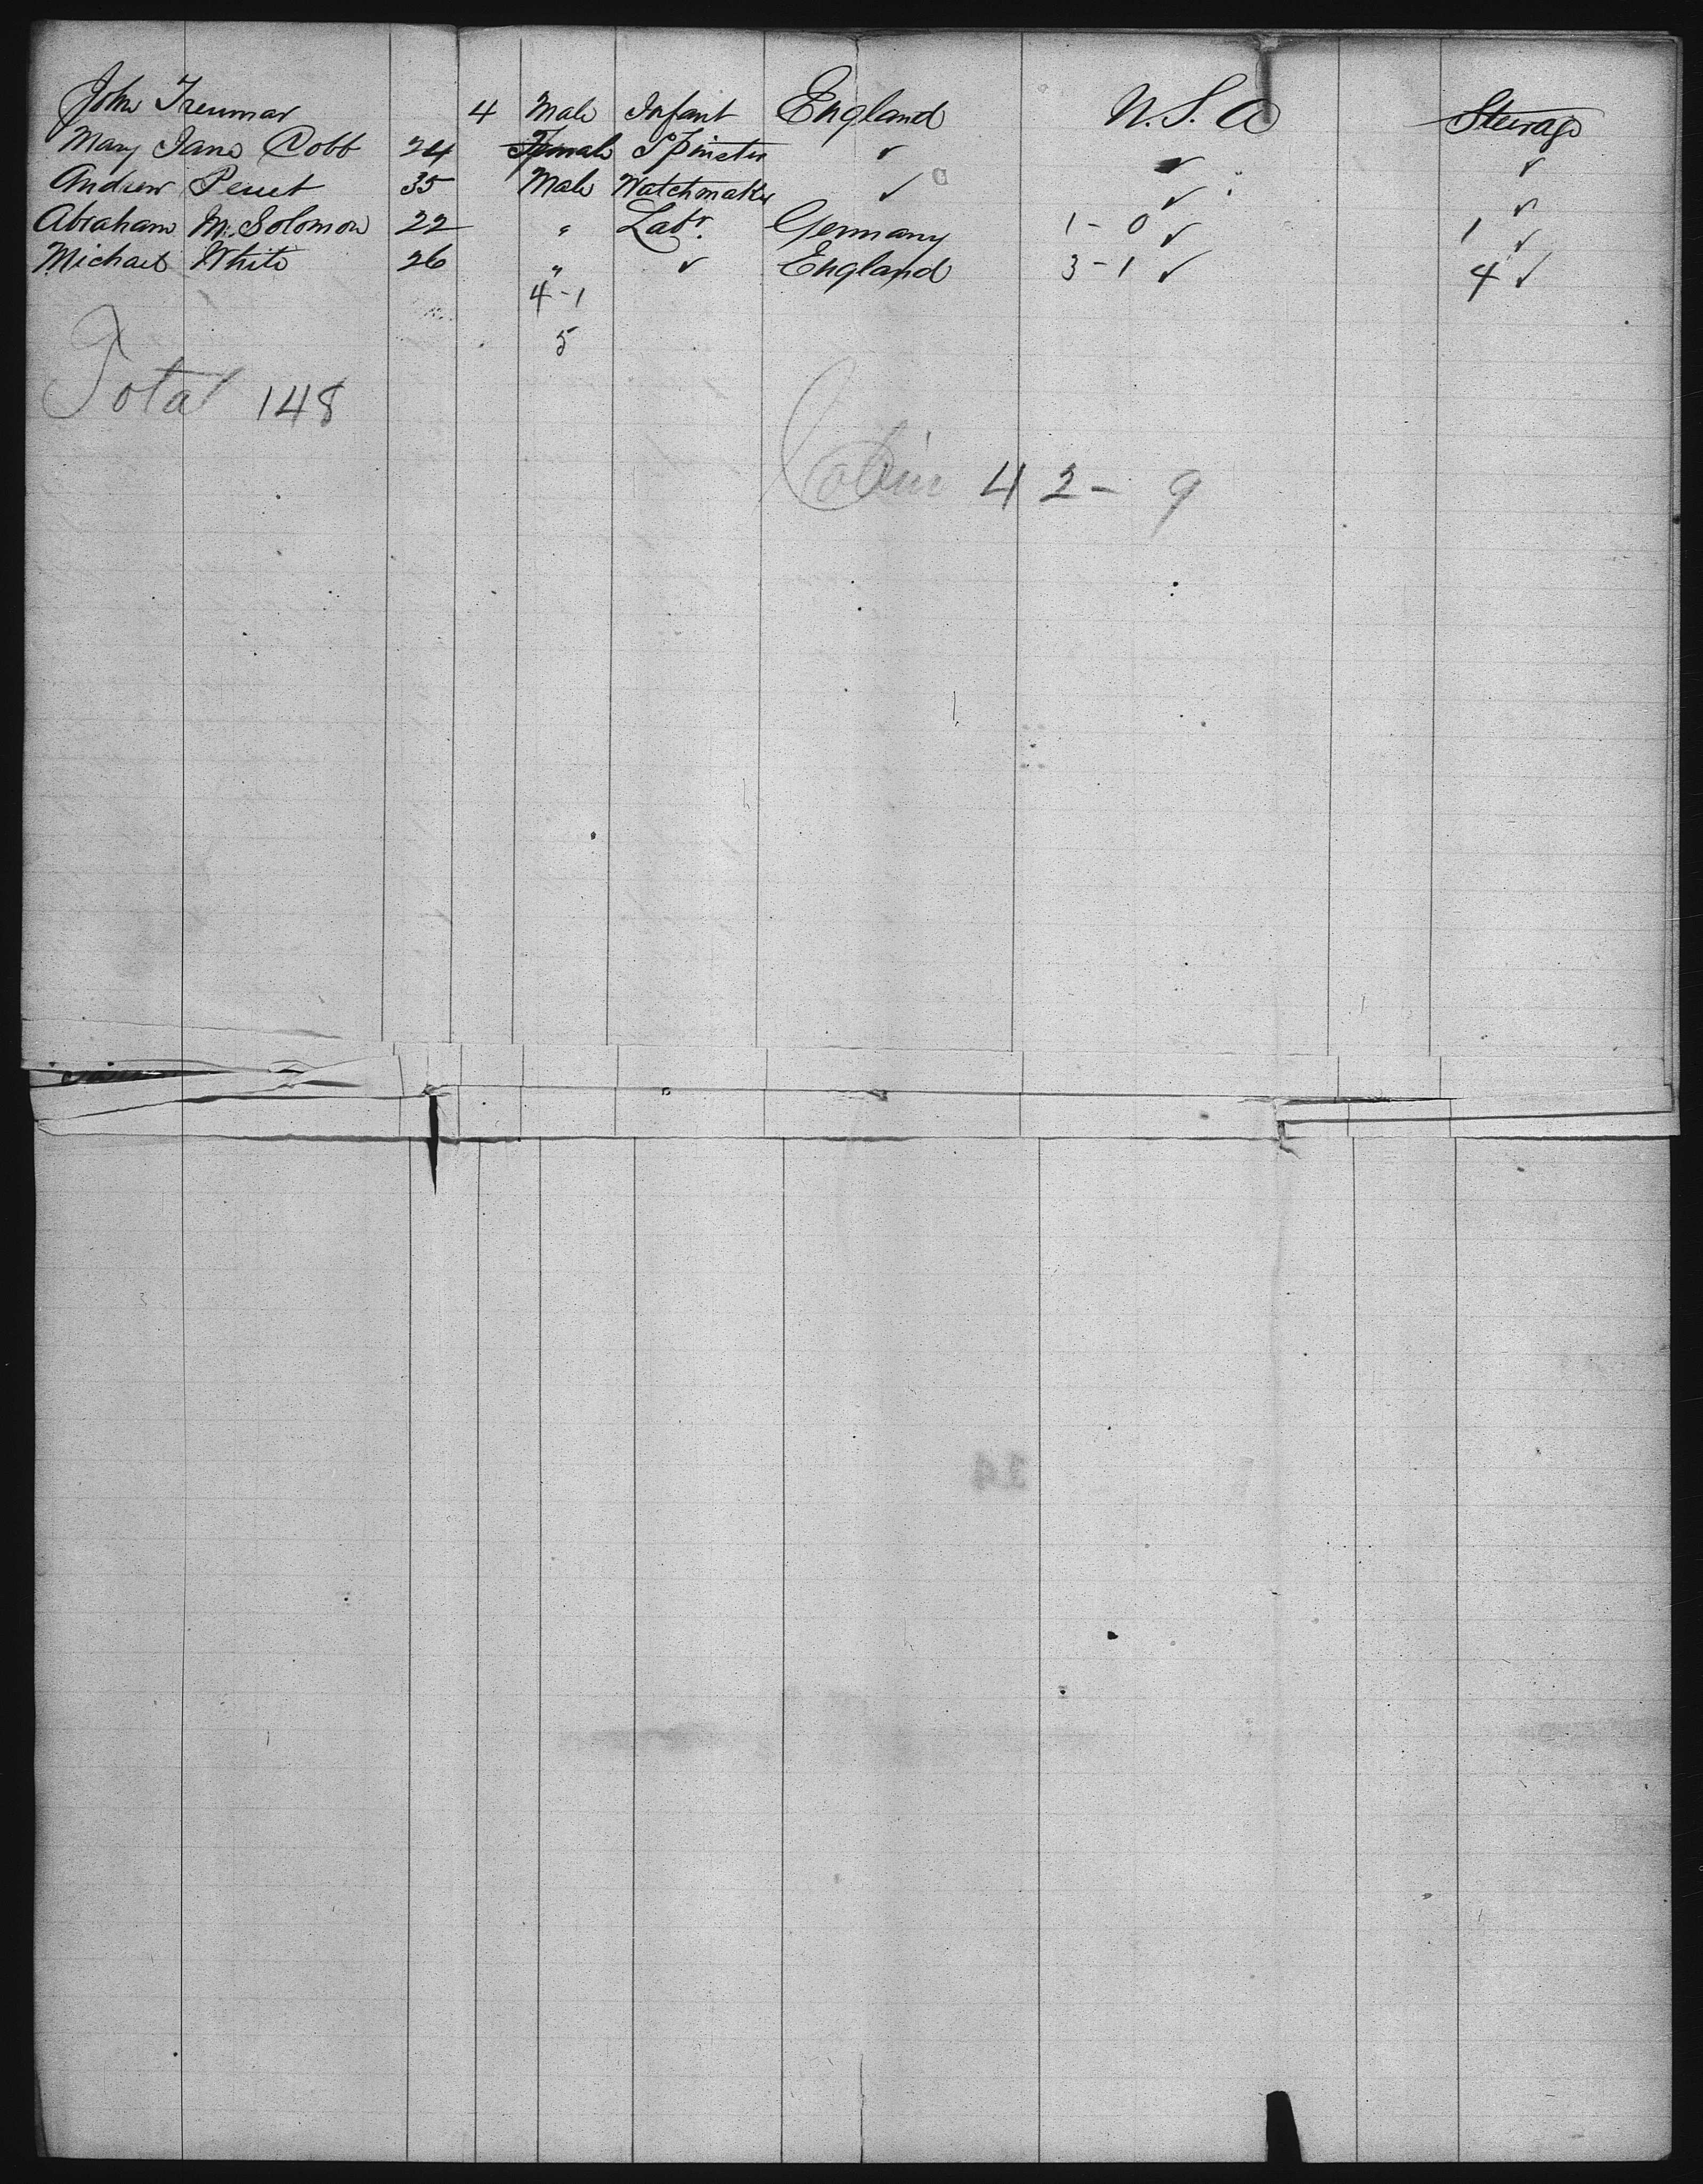 John Treumar 4 Male Infant England U.S.A Steerage
Mary Jane Cobb 24 Female Spinster ✓ ✓ ✓
Andrew Perret 35 Male Watchmaker ✓ ✓ ✓
Abraham M. Solomon 22 " Labr. Germany 1-0 ✓ 1 ✓
Michael White 26 " ✓ England 3-1 ✓ 4 ✓
4-1
5
Total 148
Cabin 42-9
34